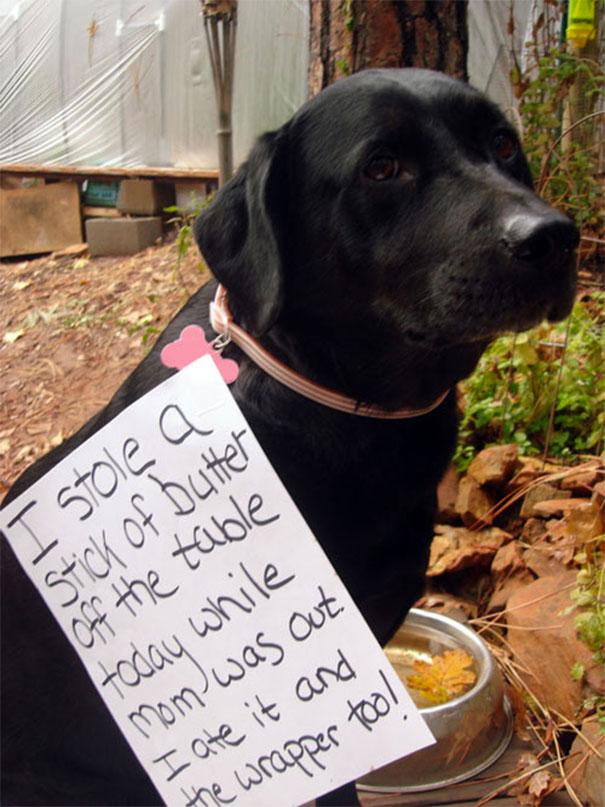 I stole a
stick of butter
off the table
today while
mom was out.
I ate it and
the wrapper too!